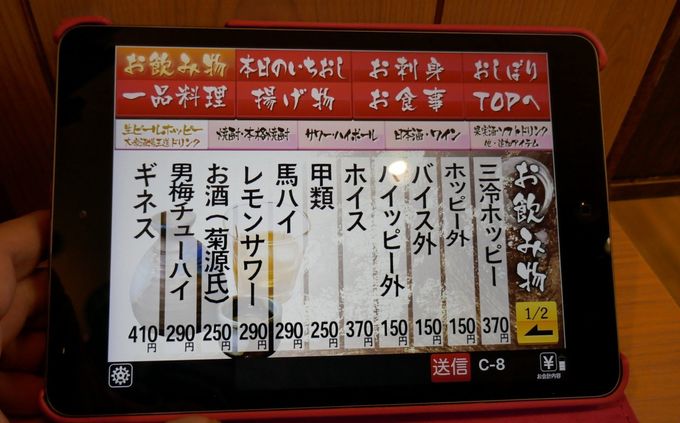 お飲み物 本日のいちおし お刺身 おしぼり
一品料理 揚げ物 お食事 TOPへ
生ビールホッピー
大衆酒場王道ドリンク
焼酎・本格焼酎
サワー・ハイボール
日本酒・ワイン
果実酒・ソフトドリンク
他・追加アイテム
お飲み物
1/2
三冷ホッピー 370円
ホッピー外 150円
バイス外 150円
ハイッピー外 150円
ホイス 370円
甲類 250円
馬ハイ 290円
レモンサワー 290円
お酒(菊源氏) 250円
男梅チューハイ 290円
ギネス 410円
送信 C-8
¥
お会計内容